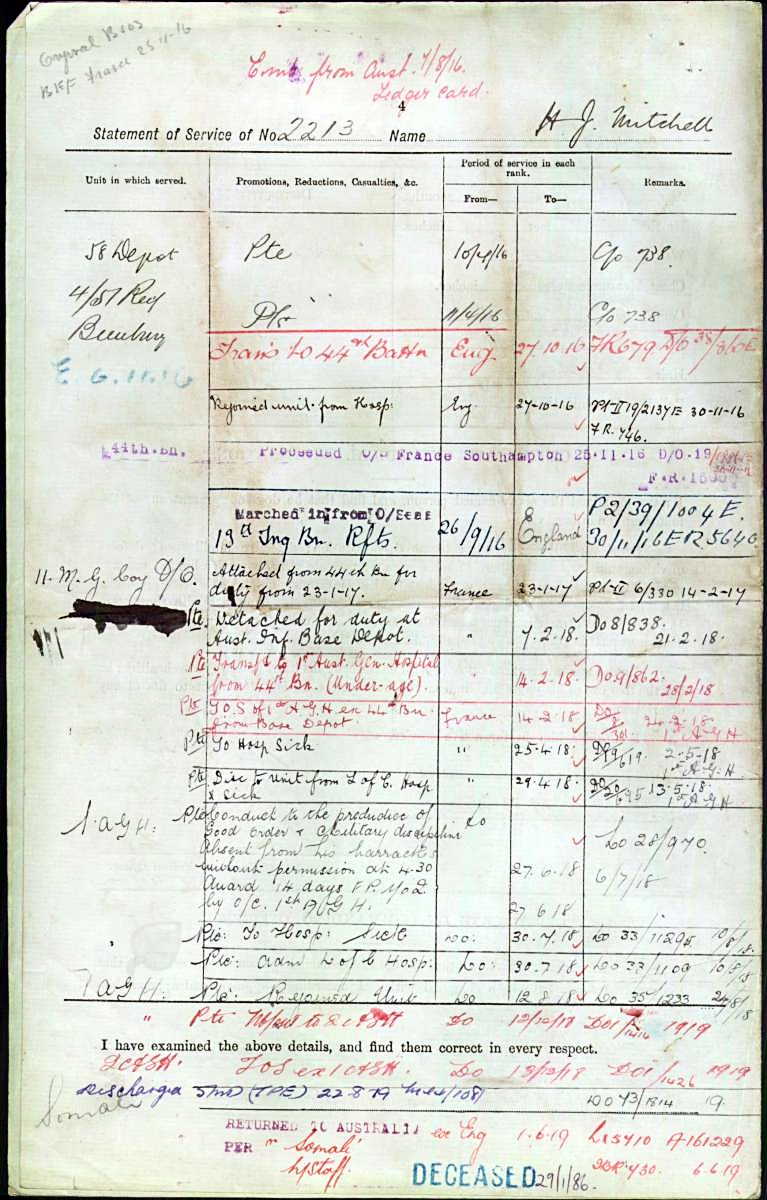 Original B103
BEF France 25-11-16
Comb from Aust. 7/8/16.
Ledger card.
4
Statement of Service of No. 2213 Name H J. Mitchell
Unit in which served. Promotions, Reductions, Casualties, &c. Period of service in each rank. Remarks.
From— To—
58 Depot Pte 10/4/16 C/o 738.
4/51 Rec
Pte 11/4/16 C/o 738
Bunbury
Trans to 44th Battn Eng. 27.10.16 FR679
E 6.11.16
Rejoined unit from Hosp: Eng 27-10-16 Pt II 19/2137E 30-11-16
F.R. 746.
44th.Bn. Proceeded O/S France Southampton 25.11.16 D/O.19
F.R.
Marched in from O/Seas
13th Tng Bn. Rfts. 26/9/16 England P2/39/1004E.
30/11/16 ER5640
11. M.G. Coy D/O. Attached from 44th Bn for
duty from 23-1-17. France 23-1-17. Pt-II 6/330 14-2-17
Pte Detached for duty at
Aust. Inf. Base Depot. " 7.2.18. Do 8/838.
21.2.18.
Pte Transfd to 1st Aust. Gen. Hospital
from 44th Bn. (Under-age). 14-2-18 Do 9/862.
28/2/18
Pte T.O.S of 1st A.G.H ex 44th Bn.
from Base Depot. France 14-2-18 DO 24-2-18.
1st A G H
Pte To Hosp Sick " 25.4.18 DO 19/619. 2-5-18
1st A.G.H.
Pte Disc to unit from L of C. Hosp
x Sick " 29.4.18 DO 20/695 13.5.18.
1st A G H
1.A.G.H. Pte Conduct to the predudice of
Good order & Military discipline Do
Absent from his barracks Do 28/970.
without permission at 4-30 27.6.18 6/7/18
Award 14 days F.P. No 2
by O/C. 1st A G H. 27 6 18
Pte: To Hosp: Sick Do: 30.7.18 Do 33/1129 10/8/18.
Pte: Adm L of C Hosp: Do: 30.7.18 Do 33/1109 10/8/18
1 A G H: Pte: Rejoined Unit Do 12.8.18 Do 35/1233 24/8/18
" Pte to 2 AGH Do 12/12/18 DO1 1919
I have examined the above details, and find them correct in every respect.
2 AGH. TOS ex 1 AGH. Do 13/12/18 DO1/1426 1919
Discharged 5MD (TPE) 22 8 19 DO 43/1814 19
Somali
RETURNED TO AUSTRALIA ex Eng 1.6.19 A161229
PER "Somali"
H/Staff. 6.6.19
DECEASED 29/1/86.